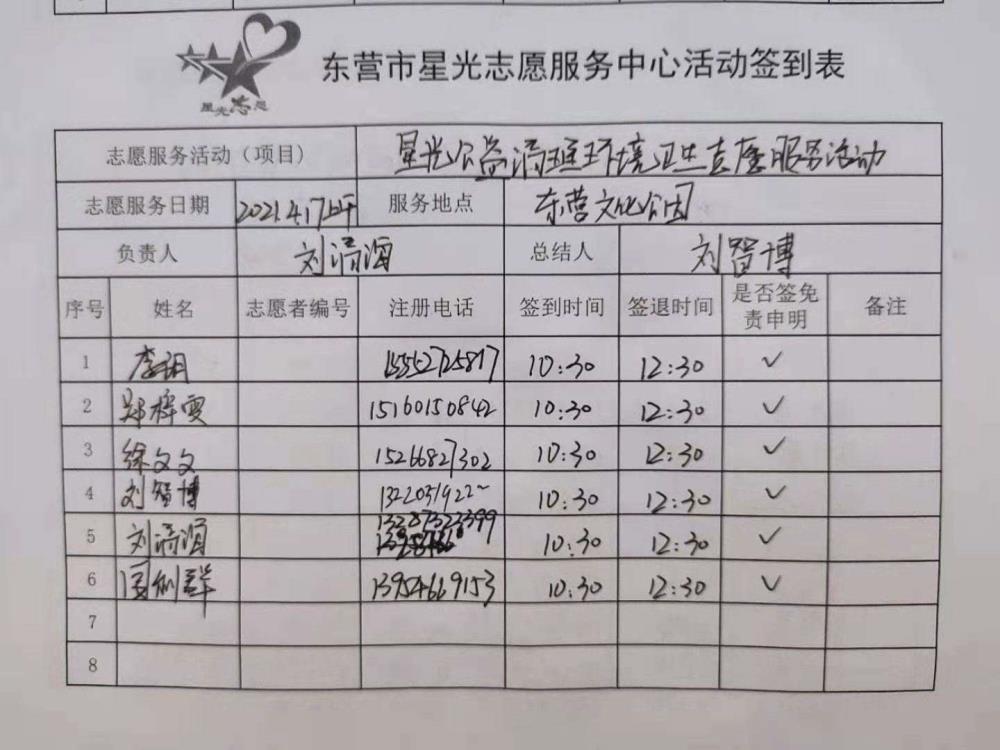 星光志愿
东营市星光志愿服务中心活动签到表
志愿服务活动（项目） 星光公益清理环境卫生志愿服务活动
志愿服务日期 2021.4.17上午 服务地点 东营文化公园
负责人 刘清海 总结人 刘智博
序号 姓名 志愿者编号 注册电话 签到时间 签退时间 是否签免责申明 备注
1 李 15552725817 10:30 12:30 ✓
2 郑梓雯 15160150842 10:30 12:30 ✓
3 徐文文 15266827302 10:30 12:30 ✓
4 刘智博 10:30 12:30 ✓
5 刘清海 13287323399 10:30 12:30 ✓
6 13954669153 10:30 12:30 ✓
7
8